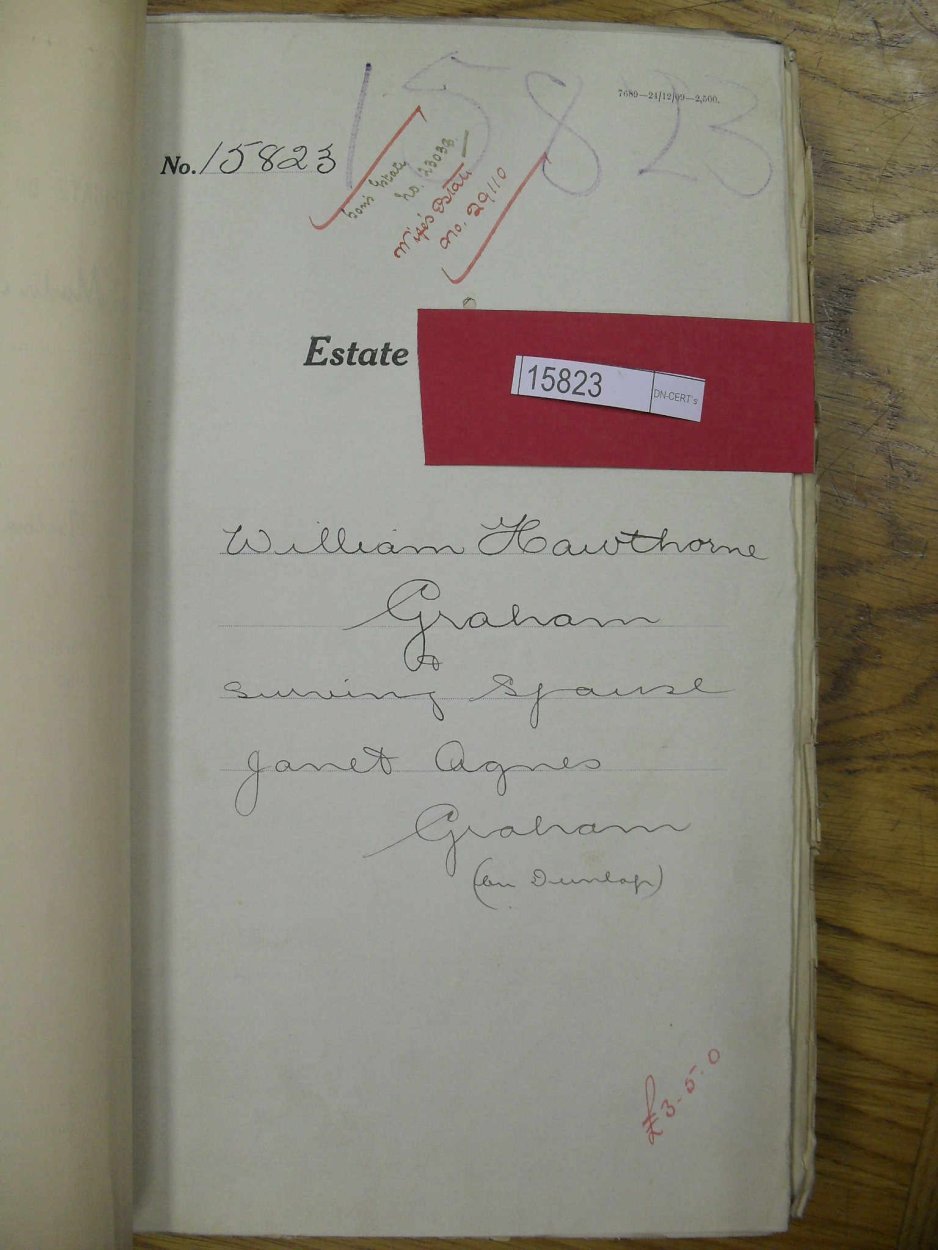 15823
7689—24/12/09—2,500.
No. 15823
Sons Estate
no. 23033
Wife's Estate
no. 29110
Estate
15823
DN-CERT's
William Hawthorne
Graham
&
surving Spouse
Janet Agnes
Graham
Dunlop)
£3.5.0